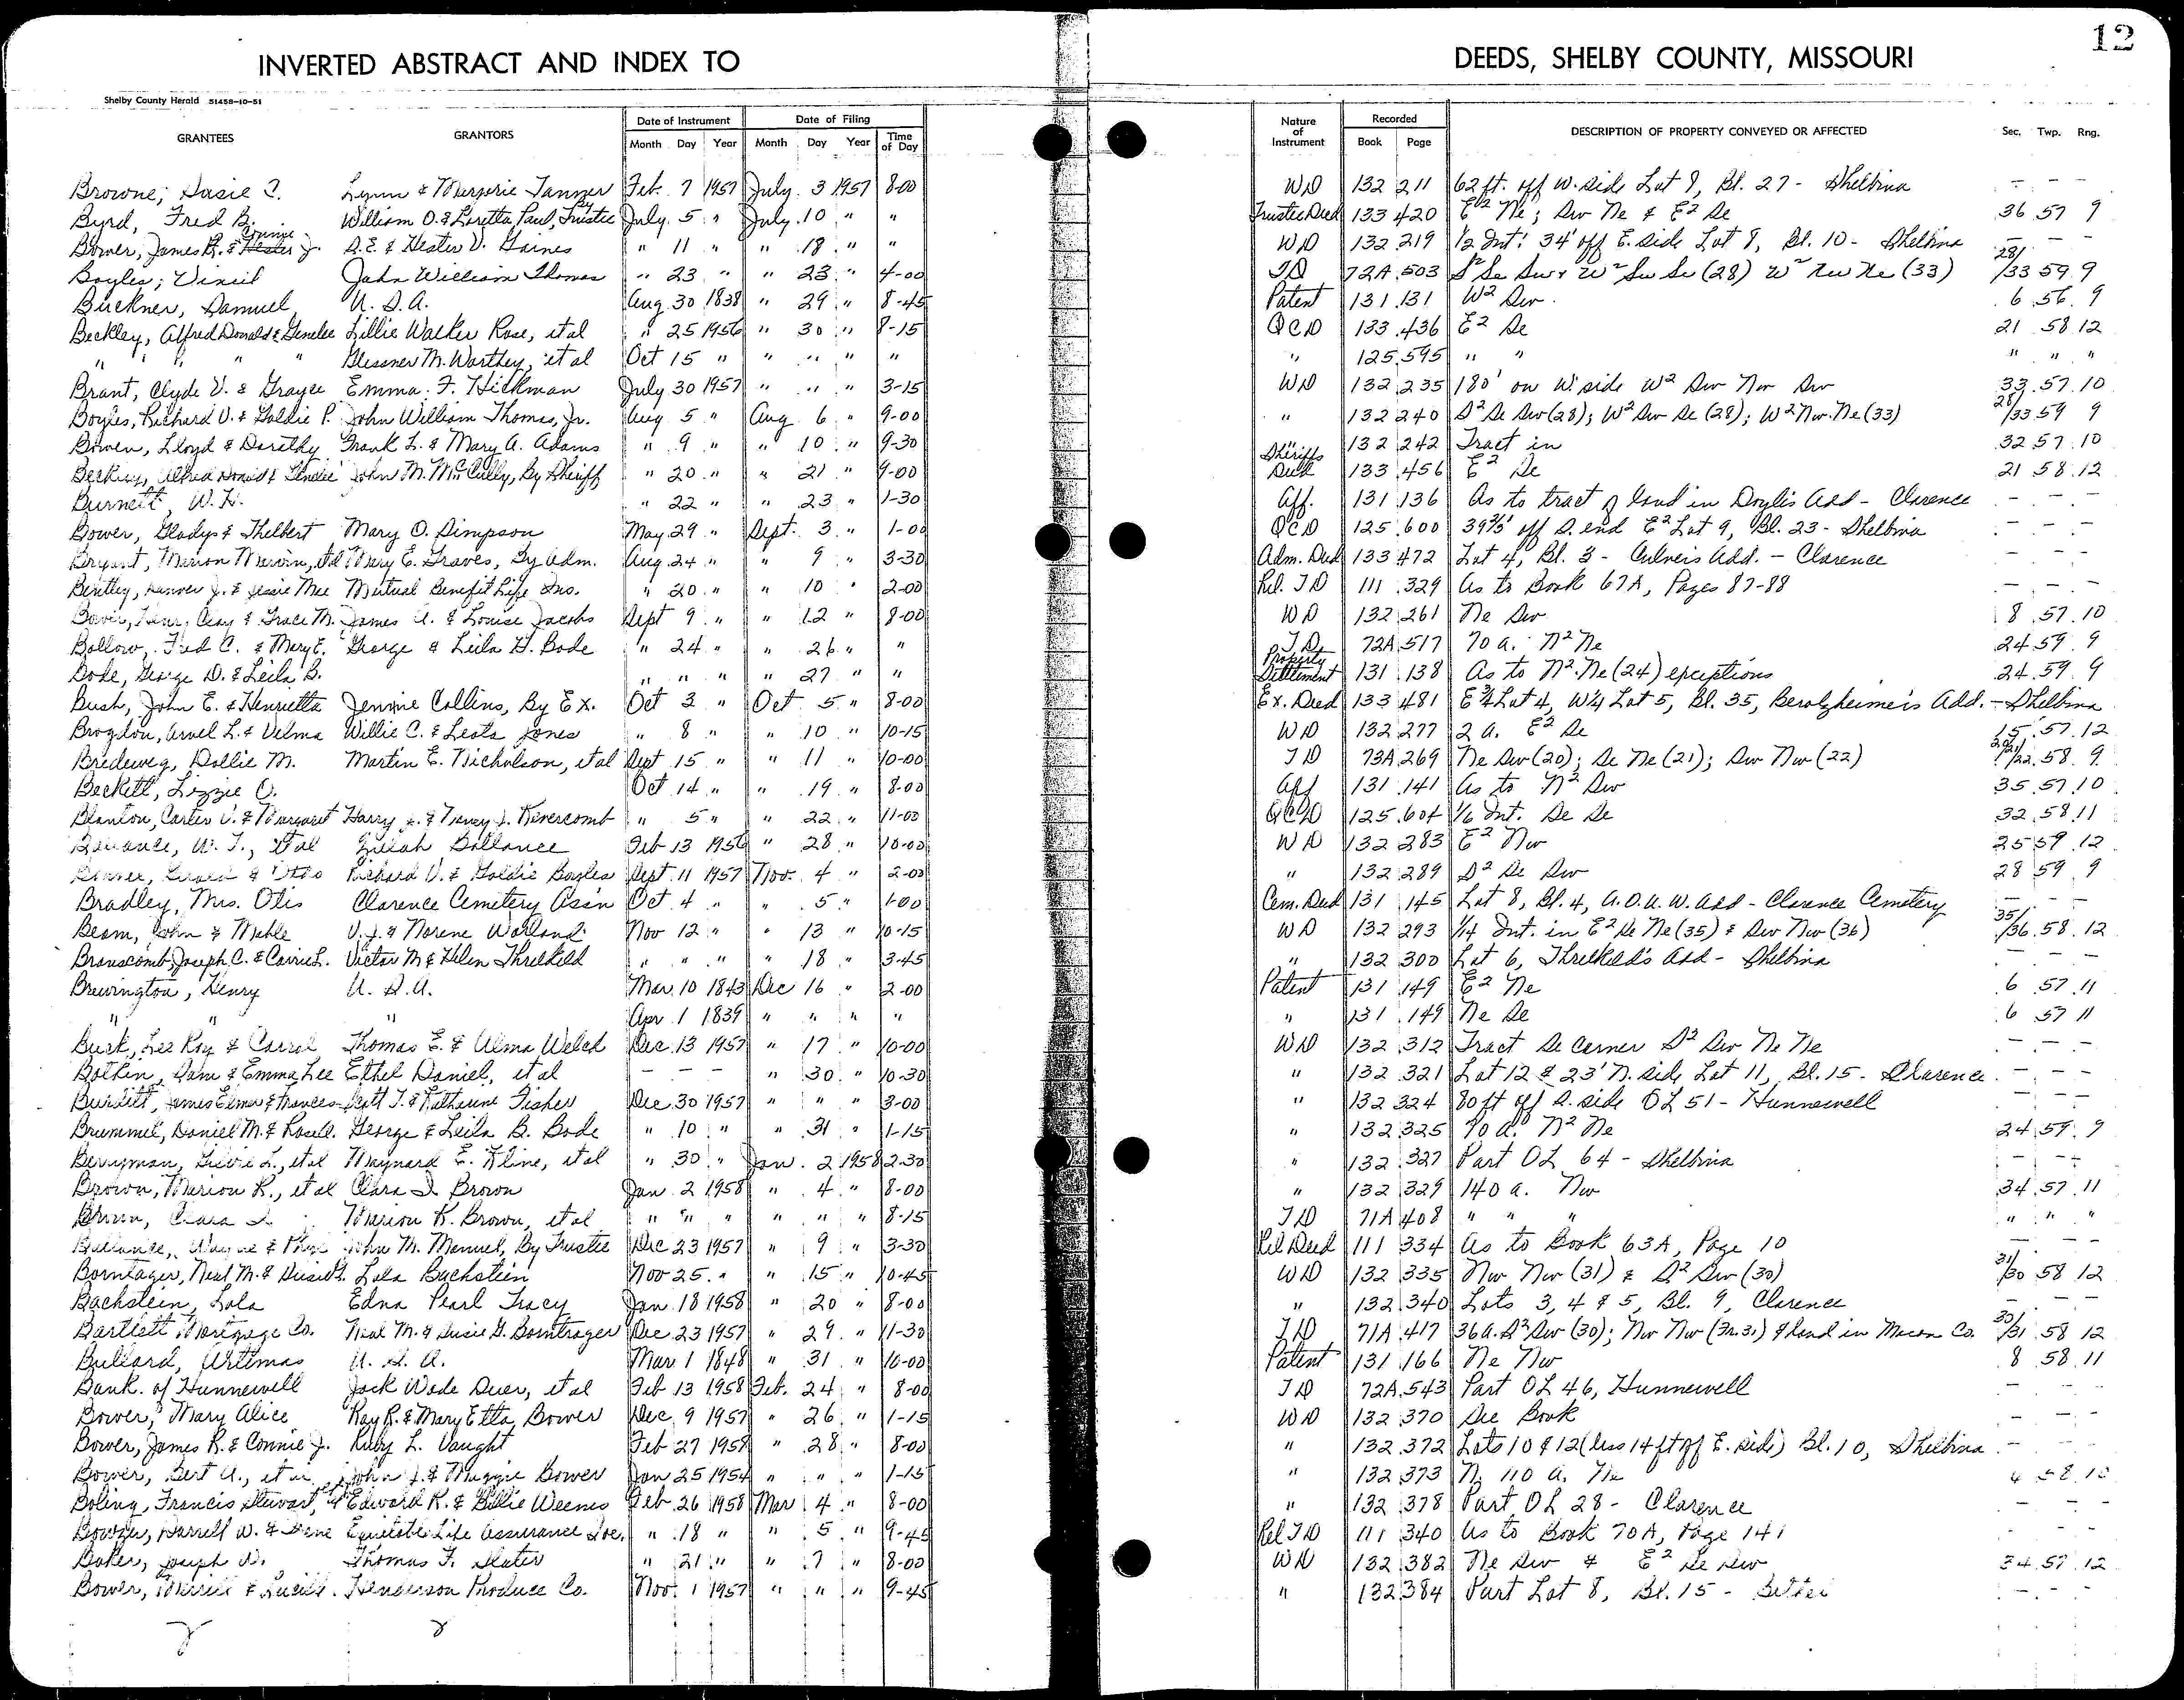 12
INVERTED ABSTRACT AND INDEX TO DEEDS, SHELBY COUNTY, MISSOURI
Shelby County Herald 51458-10-51
GRANTEES GRANTORS Date of Instrument Month Day Year Date of Filing Month Day Year Time of Day Nature of Instrument Recorded Book Page DESCRIPTION OF PROPERTY CONVEYED OR AFFECTED Sec. Twp. Rng.
Browne, Susie C. Lynn & Margerie Tanner Feb. 7 1957 July. 3 1957 8-00 WD 132 211 62 ft. off W. side Lot 9, Bl. 27 - Shelbina - - -
Byrd, Fred B. William O. & Loretta Paul, By Trustee July. 5 " July. 10 " " Trustee Deed 133 420 E² Ne; Sw Ne & E² Se 36 57 9
Bower, James R. & Connie J. S. E. & Hester V. Gaines " 11 " " 18 " " WD 132 219 1/2 Int: 34' off E. side Lot 8, Bl. 10 - Shelbina - - -
Boyles, Virgil John William Thomas " 23 " " 23 " 4-00 TD 72A 503 S² Se Sw & W² Sw Se (28) W² Nw Ne (33) 28/33 59 9
Buckner, Samuel U. S. A. Aug 30 1838 " 29 " 8-45 Patent 131 131 W² Sw 6 56 9
Beckley, Alfred Donald & Genelee Lillie Walker Rose, et al " 25 1956 " 30 " 8-15 QCD 133 436 E² Se 21 58 12
" " " " Glessner M. Worthey, et al Oct 15 " " " " " " 125 595 " " " " "
Brant, Clyde V. & Grayce Emma F. Hickman July 30 1957 " " " 3-15 WD 132 235 180' on W side W² Sw Nw Sw 33 57 10
Boyles, Richard V. & Goldie P. John William Thomas, Jr. Aug 5 " Aug 6 " 9-00 " 132 240 S² Se Sw (28); W² Sw Se (28); W² Nw Ne (33) 28/33 59 9
Bowen, Lloyd & Dorothy Frank L. & Mary A. Adams " 9 " " 10 " 9-30 " 132 242 Tract in 32 57 10
Beckley, Alfred Donald & Genelee John M. McCully, By Sheriff " 20 " " 21 " 9-00 Sheriffs Deed 133 456 E² Se 21 58 12
Burnett, W. H. " 22 " " 23 " 1-30 Aff. 131 136 As to tract of land in Doyles Add - Clarence - - -
Bower, Gladys & Thelbert Mary O. Simpson May 29 " Sept. 3 " 1-00 QCD 125 600 off S. end E² Lot 9, Bl. 23 - Shelbina - - -
Bryant, Marion Marvin, et al Mary E. Graves, By Adm. Aug 24 " " 9 " 3-30 Adm. Deed 133 472 Lot 4, Bl. 3 - Culvers Add. - Clarence - - -
Bentley, J. & Jessie Mae Mutual Benefit Life Ins. " 20 " " 10 " 2-00 Rel. TD 111 329 As to Book 67A, Pages 87-88
Bower, Henry Clay & Grace M. James A. & Louise Jacobs Sept 9 " " 12 " 8-00 WD 132 261 Ne Sw 8 57 10
Bollow, Fred C. & Mary E. George & Leila H. Bode " 24 " " 26 " " TD 72A 517 70 a. N² Ne 24 59 9
Bode, George D. & Leila B. " " " " 27 " " Property Settlement 131 138 As to N² Ne (24) exceptions 24 59 9
Bush, John E. & Henrietta Jennie Collins, By Ex. Oct 3 " Oct 5 " 8-00 Ex. Deed 133 481 E¾ Lot 4, W¼ Lot 5, Bl. 35, Berolzheimer's Add. - Shelbina
Brogdon, Arvel L. & Velma Willie C. & Leota Jones " 8 " " 10 " 10-15 WD 132 277 2 a. E² Se 15 57 12
Bredeweg, Dollie M. Martin E. Nicholson, et al Sept 15 " " 11 " 10-00 TD 73A 269 Ne Sw (20); Se Ne (21); Sw Nw (22) 58 9
Beckett, Lizzie O. Oct 14 " " 19 " 8-00 Aff 131 141 As to N² Sw 35 57 10
Blanton, Carter V. & Margaret Harry & Kevercomb " 5 " " 22 " 11-00 QCD 125 604 1/6 Int. Se Se 32 58 11
Ballance, W. T., et al Ballance Feb 13 1956 " 28 " 10-00 WD 132 283 E² Nw 25 59 12
Richard V. & Goldie Boyles Sept. 11 1957 Nov. 4 " 2-00 " 132 289 S² Se Sw 28 59 9
Bradley, Mrs. Otis Clarence Cemetery Ass'n Oct. 4 " " 5 " 1-00 Cem. Deed 131 145 Lot 8, Bl. 4, A.O.U.W. Add - Clarence Cemetery - - -
Beam, John & Mable V. J. & Norene Worland Nov 12 " " 13 " 10-15 WD 132 293 1/14 Int. in E² Se Ne (35) & Sw Nw (36) 35/36 58 12
Branscomb, Joseph C. & Carrie L. Victor M & Helen Threlkeld " " " " 18 " 3-45 " 132 300 Lot 6, Threlkeld's Add - Shelbina - - -
Brewington, Henry U. S. A. Mar 10 1843 Dec 16 " 2-00 Patent 131 149 E² Ne 6 57 11
" " " Apr 1 1839 " " " " " 131 149 Ne Se 6 57 11
Busk, Lee Roy & Carrol Thomas E. & Alma Welch Dec. 13 1957 " 17 " 10-00 WD 132 312 Tract Se Corner S² Sw Ne Ne - - -
Botkin, Sam & Emma Lee Ethel Daniel, et al - - - " 30 " 10-30 " 132 321 Lot 12 & 23' N. side Lot 11, Bl. 15 - Clarence - - -
Burditt, James Elmer & Frances Scott T. & Katherine Fisher Dec 30 1957 " " " 3-00 " 132 324 80 ft off S. side OL 51 - Hunnewell - - -
Brummel, Daniel M. & Rose A. George & Leila B. Bode " 10 " " 31 " 1-15 " 132 325 70 a. N² Ne 24 59 9
Berryman, L., et al Maynard E. Kline, et al " 30 " Jan. 2 1958 2-30 " 132 327 Part OL 64 - Shelbina - - -
Brown, Marion R., et al Clara I. Brown Jan 2 1958 " 4 " 8-00 " 132 329 140 a. Nw 34 57 11
Brown, Clara I. Marion R. Brown, et al " " " " " " 8-15 TD 71A 408 " " " " " "
Ballance, Wayne & John M. Manuel, By Trustee Dec 23 1957 " 9 " 3-30 Rel Deed 111 334 As to Book 63A, Page 10 - - -
Borntager, Neal M. & Susie G. Lola Bachstein Nov 25 " " 15 " 10-45 WD 132 335 Nw Nw (31) & S² Sw (30) 31/30 58 12
Bachstein, Lola Edna Pearl Tracy Jan 18 1958 " 20 " 8-00 " 132 340 Lots 3, 4 & 5, Bl. 9, Clarence - - -
Bartlett Mortgage Co. Neal M. & Susie G. Borntrager Dec 23 1957 " 29 " 11-30 TD 71A 417 36 a. S² Sw (30); Nw Nw (Fr. 31) & land in Macon Co. 30/31 58 12
Bullard, Artimas U. S. A. Mar 1 1848 " 31 " 10-00 Patent 131 166 Ne Nw 8 58 11
Bank of Hunnewell Jack Wade Duer, et al Feb 13 1958 Feb. 24 " 8-00 TD 72A 543 Part OL 46, Hunnewell - - -
Bower, Mary Alice Ray R. & Mary Etta Bower Dec. 9 1957 " 26 " 1-15 WD 132 370 See Book - - -
Bower, James R. & Connie J. Ruby L. Vaught Feb 27 1958 " 28 " 8-00 " 132 372 Lots 10 & 12 (less 14 ft off E. side) Bl. 10, Shelbina - - -
Bower, Bert A., et al John J. & Maggie Bower Jan 25 1954 " " " 1-15 " 132 373 N. 110 a. Ne 58 10
Boling, Francis Stewart, et al Edward R. & Billie Weems Feb 26 1958 Mar 4 " 8-00 " 132 378 Part OL 28 - Clarence - - -
Darrell W. & Equitable Life Assurance Soc. " 18 " " 5 " 9-45 Rel TD 111 340 As to Book 70A, Page 141 - - -
Baker, Joseph Thomas F. Slater " 21 " " 7 " 8-00 WD 132 382 Ne Sw & E² Se Sw 34 57 12
Bower, Merrill & Henderson Produce Co. Nov. 1 1957 " " " 9-45 " 132 384 Part Lot 8, Bl. 15 - - - -